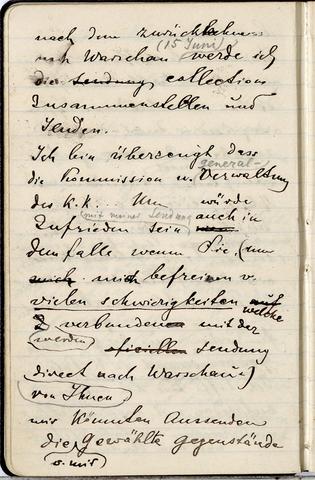 nach dem zurückkehren
nach Warschau (15 Juni) werde ich
die sendung collection
Zusammenstellen und
Senden.
Ich bin überzeugt dass
die Kommission u. general-Verwaltung
des K.K... Um würde
Zufrieden sein mit meiner Sendung auch in
dem falle wenn Sie, (um
mich mich befreien v.
vielen schwierigkeiten auf welche
verbunden mit der
(werden) oficiellen sendung
direct nach Warschau)
von Ihnen
mir könnten Aussenden
die gewählte gegenstände
v. mir